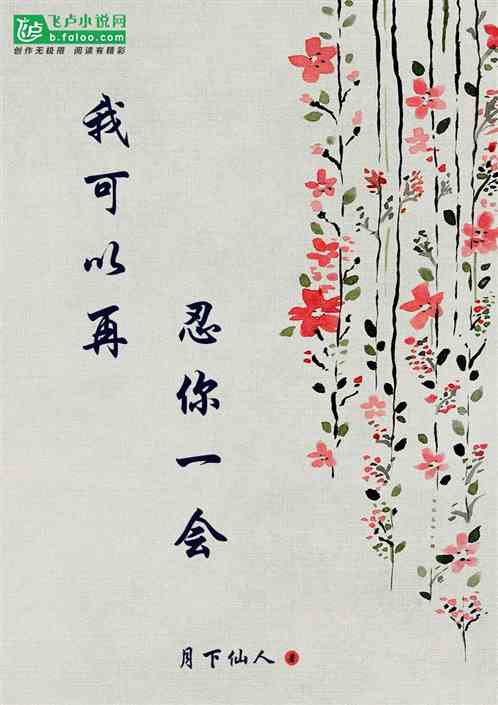 飞卢小说网
b.faloo.com
创作无极限 阅读有精彩
我可以再
忍你一会
月下仙人 著